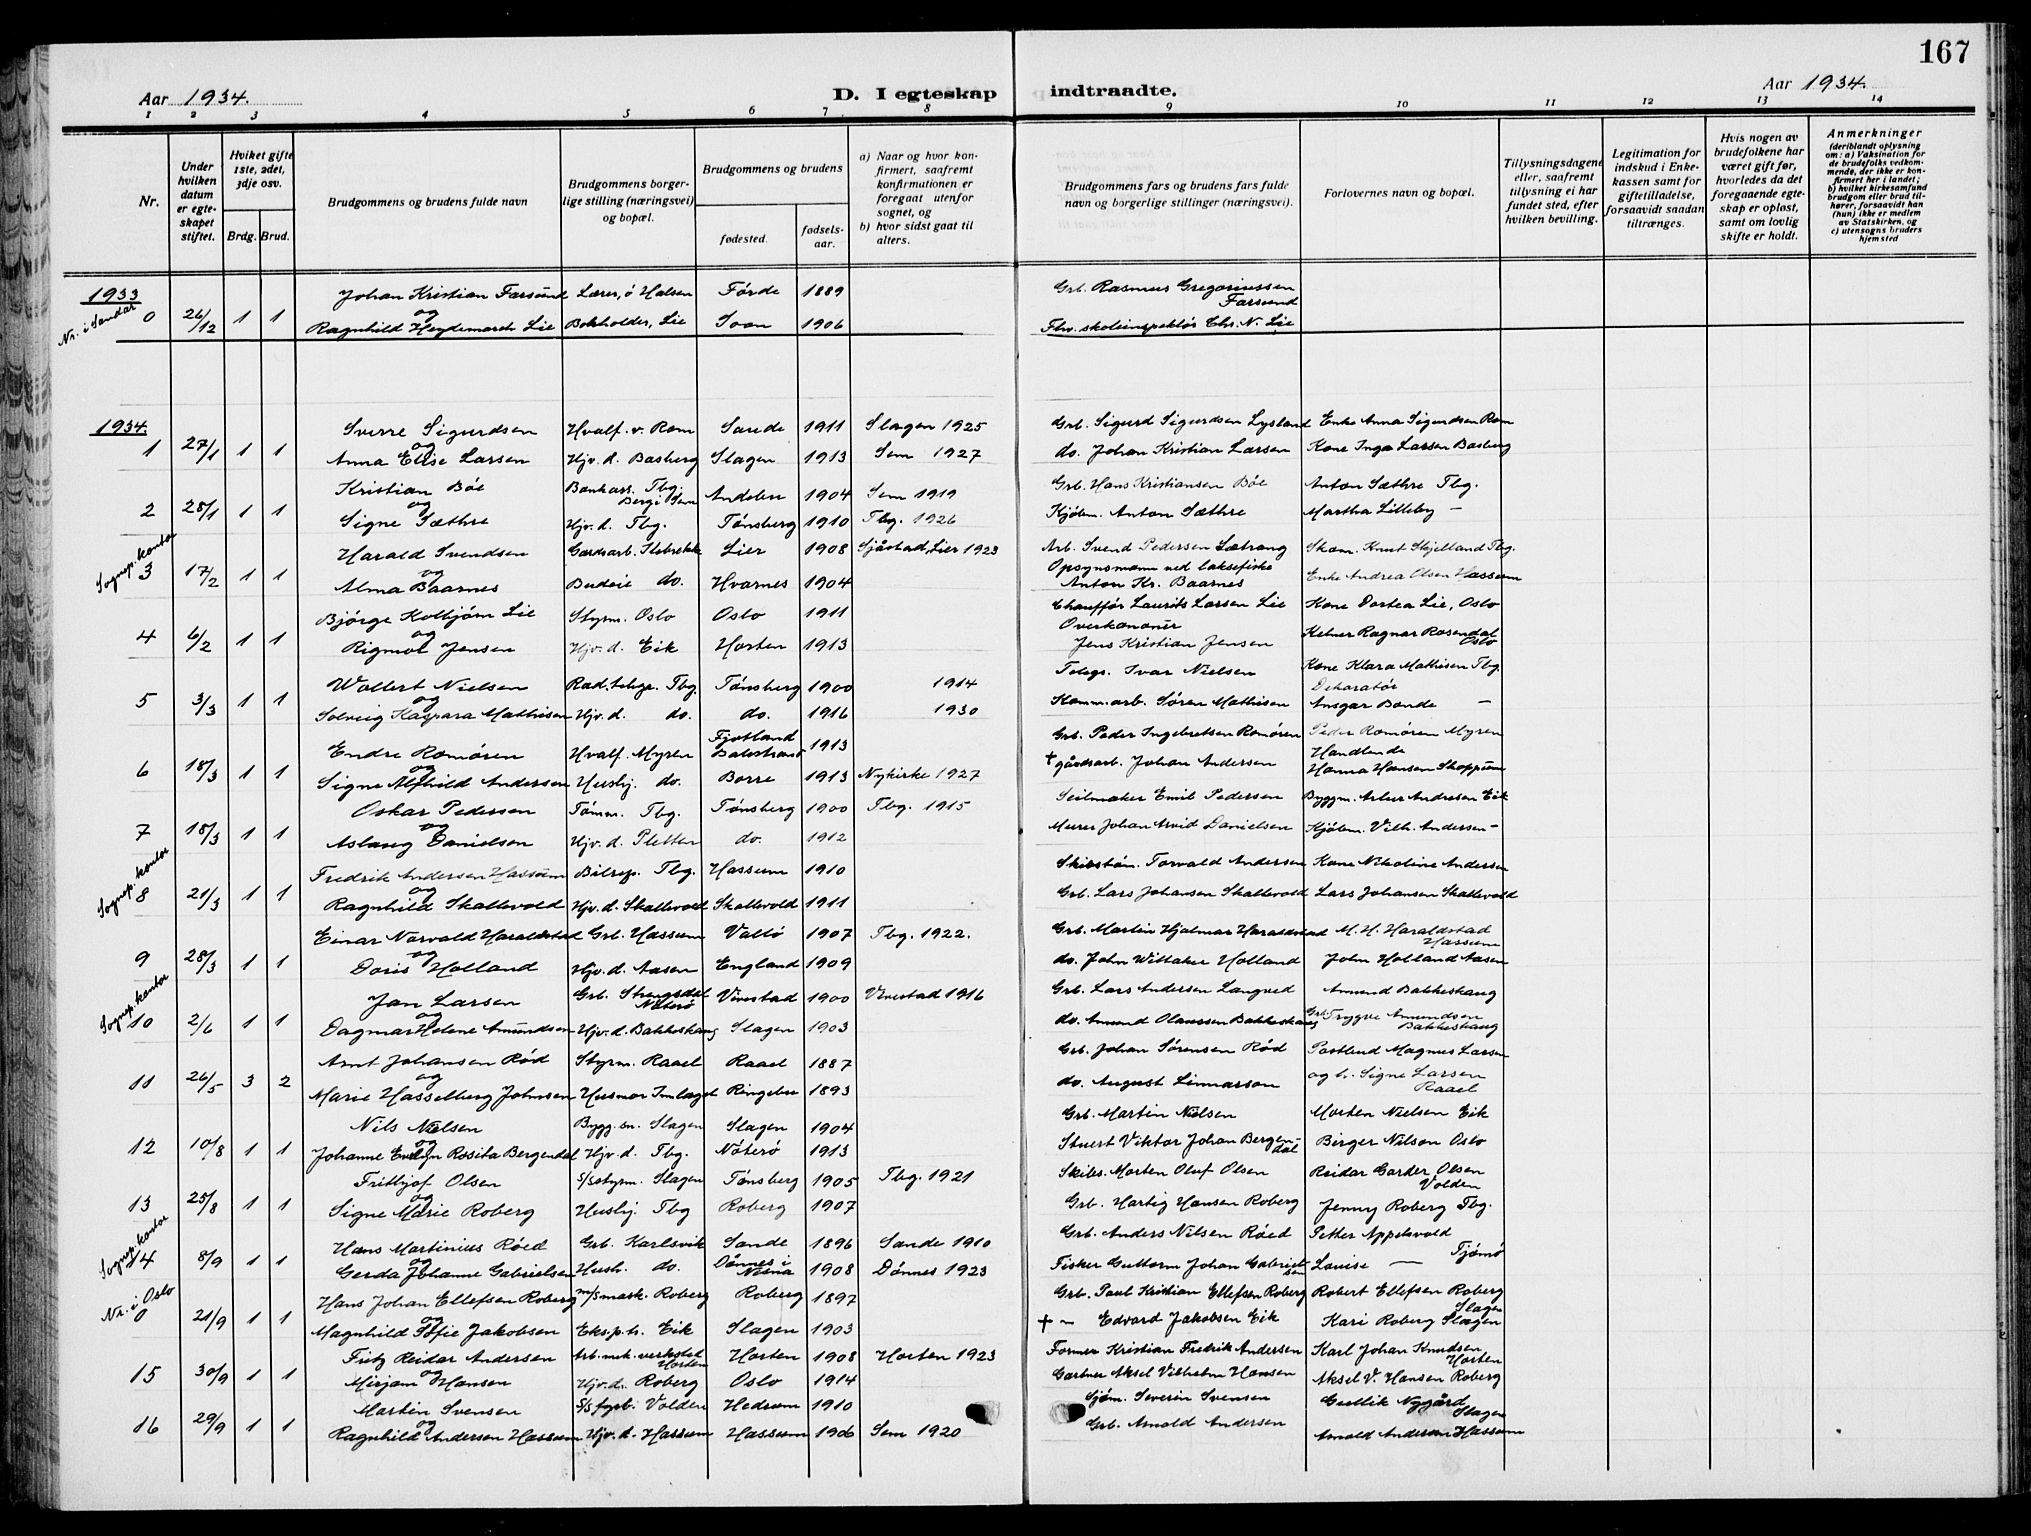 167
Aar 1934.
D. I egteskap
indtraadte.
Aar 1934.
1 2 3 4 5 6 7 8 9 10 11 12 13 14
Nr.
Under hvilken datum er egteskapet stiftet.
Hviket gifte 1ste, 2det, 3dje osv.
Brdg. Brud.
Brudgommens og brudens fulde navn
Brudgommens borgerlige stilling (næringsvei) og bopæl.
Brudgommens og brudens
fødested. fødselsaar.
a) Naar og hvor konfirmert, saafremt konfirmationen er foregaat utenfor sognet, og
b) hvor sidst gaat til alters.
Brudgommens fars og brudens fars fulde navn og borgerlige stillinger (næringsvei).
Forlovernes navn og bopæl.
Tillysningsdagene eller, saafremt tillysning ei har fundet sted, efter hvilken bevilling.
Legitimation for indskud i Enkekassen samt for giftetilladelse, forsaavidt saadan tiltrænges.
Hvis nogen av brudefolkene har været gift før, hvorledes da det foregaaende egteskap er opløst, samt om lovlig skifte er holdt.
Anmerkninger
(deriblandt oplysning om: a) Vaksination for de brudefolks vedkommende, der ikke er konfirmert her i landet; b) hvilket kirkesamfund brudgom eller brud tilhører, forsaavidt han (hun) ikke er medlem av Statskirken, og c) utensogns bruders hjemsted
1933
Johan Kristian Farsund Lærer, ö Halsen Förde 1889 Grb. Rasmus Gregoriussen Farsund
Nr. i Sandar 0 26/12 1 1 og
Ragnhild Heydemarch Lie Bokholder, Lie 1906 Fhv. skoleinspektör Chr. N. Lie
1934.
Sverre Sigurdsen Hvalf. v. Rom Sande 1911 Slagen 1925 Grb. Sigurd Sigurdsen Lysland Enke Anna Sigurdsen Rom
1 27/1 1 1 og
Anna Elise Larsen Hjv. d. Basberg Slagen 1913 Sem 1927 do. Johan Kristian Larsen Kone Inga Larsen Basberg
Kristian Böe Bankass. Tbg. Berg i Sem Andebu 1904 Sem 1919 Grb. Hans Kristiansen Böe Anton Sæthre Tbg.
2 28/1 1 1 og
Signe Sæthre Hjv. d. Tbg. Tønsberg 1910 Tbg. 1926 Kjöbm. Anton Sæthre Martha Lilleby —
Harald Svendsen Gardsarb. Lier 1908 Sjåstad, Lier 1923 Arb. Svend Pedersen Sætrang Knut Skjelland Tbg.
Sognep. kontor 3 17/2 1 1 og
Alma Baarnes Budeie do. Hvarnes 1904 Opsynsmann ved laksefiske Anton Kr. Baarnes Enke Andrea Olsen Hassum
Bjørge Kolbjørn Lie Styrm. Oslo Oslo 1911 Chauffør Laurits Larsen Lie Kone Dortea Lie, Oslo
4 6/2 1 1 og
Rigmor Jensen Hjv. d. Eik Horten 1913 Overkanonér Jens Kristian Jensen Kelner Ragnar Rosendal Oslo
Wollert Nielsen Rad. telegr. Tbg Tønsberg 1900 1914 Telegr. Ivar Nielsen Kone Klara Mathisen Tbg
5 3/3 1 1 og
Solveig Kaspara Mathisen Hjv. d. do. do. 1916 1930 Komm. arb. Søren Mathisen Dekoratør Ansgar Bonde —
Endre Romøren Hvalf. Myren Fjotland Balestrand 1913 Grb. Peder Ingebretsen Romøren Peder Romøren Myren
6 18/3 1 1 og
Signe Alfhild Andersen Hushj. do. Borre 1913 Nykirke 1927 + gårdsarb. Johan Andersen Handlende Hanna Hansen Skoppum
Oskar Pedersen Tömm. Tbg. Tønsberg 1900 Tbg. 1915 Seilmaker Emil Pedersen Byggm. Artur Andresen Eik
7 18/3 1 1 og
Aslaug Danielsen Hjv. d. Pletten do. 1912 Murer Johan Arvid Danielsen Kjöbm. Vilh. Andersen —
Fredrik Andersen Hassum Bilrep. Tbg. Hassum 1910 Skibstöm. Torvald Andersen Kone Nikoline Andersen
Sognep. kontor 8 21/3 1 1 og
Ragnhild Skallevold Hjv. d. Skallevold Skallevold 1911 Grb. Lars Johansen Skallevold Lars Johansen Skallevold
Einar Norvald Haraldstad Grb. Hassum Vallö 1907 Tbg. 1922. Grb. Martin Hjalmar Haraldstad M. H. Haraldstad Hassum
9 28/3 1 1 og
Doris Holland Hjv. d. Aasen England 1909 do. John Wittaker Holland John Holland Aasen
Jan Larsen Grb. Strengsdal Nøterø Vivestad 1900 Vivestad 1916 Grb. Lars Andersen Langved Amund Bakkeshaug
Sognep. kontor 10 2/6 1 1 og
Dagmar Helene Amundsen Hjv. d. Bakkeshaug Slagen 1903 do. Amund Olaussen Bakkeshaug Grb. Trygve Amundsen Bakkeshaug
Arnt Johansen Röd Styrm. Raael Raael 1887 Grb. Johan Sørensen Röd Postbud Magnus Larsen
11 26/5 3 2 og
Marie Hasselberg Johnsen Husmor Ringebu 1893 do. August Linnarson og h. Signe Larsen Raael
Nils Nielsen Bygg. sn. Slagen Slagen 1904 Grb. Martin Nielsen Morten Nielsen Eik
12 10/8 1 1 og
Johanne Evelyn Rosita Bergendal Hjv. d. Tbg. Nøterø 1913 Stuert Viktor Johan Bergendal Birger Nilson Oslo
Frithjof Olsen S/S styrm. Slagen Tønsberg 1905 Tbg. 1921 Skibs. Morten Oluf Olsen Reidar Garder Olsen Volden
13 25/8 1 1 og
Signe Marie Roberg Hushj. Tbg Roberg 1907 Grb. Hartig Hansen Roberg Jenny Roberg Tbg.
Hans Martinius Röed Grb. Karlsvik Sande 1896 Sande 1910 Grb. Anders Nilsen Röed Petter Appelsvold Tjømø
Sognep. kontor 14 8/9 1 1 og
Gerda Johanne Gabrielsen Hush. do. Dønnes i Nesna 1908 Dønnes 1923 Fisker Guttorm Johan Gabrielsen Louise —
Hans Johan Ellefsen Roberg m/s mask. Roberg Roberg 1897 Grb. Paul Kristian Ellefsen Roberg Robert Ellefsen Roberg Slagen
Nr. i Oslo 0 21/9 1 1 og
Magnhild Sofie Jakobsen Eksp. h. Eik Slagen 1903 + — Edvard Jakobsen Eik Kari Roberg Slagen
Fritz Reidar Andersen Arb. mek. verksted Horten Horten 1908 Horten 1923 Former Kristian Fredrik Andersen Karl Johan Knudsen Horten
15 30/9 1 1 og
Mirjam Hansen Hjv. d. Roberg Oslo 1914 Gartner Aksel Vilhelm Hansen Aksel V. Hansen Roberg
Martin Svensen S/S fyrb. Volden Hedrum 1910 Sjöm. Severin Svensen Gullik Nygård Slagen
16 29/9 1 1 og
Ragnhild Andersen Hassum Hjv. d. Hassum Hassum 1906 Sem 1920 Grb. Arnold Andersen Arnold Andersen Hassum